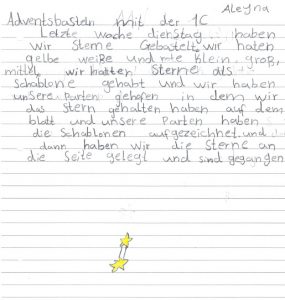 Aleyna
Adventsbasteln mit der 1C
Letzte woche dienstag haben
wir Sterne Gebastelt, wir haten
gelbe weiße und rote klein, groß,
mittel, wir hatten Sterne als
schablone gehabt und wir haben
unsere Parten gehofen in dem wir
das Stern gehalten haben auf dem
blatt und unsere Parten haben
die Schablonen aufgezeichnet, und
dann haben wir die Sterne an
die Seite gelegt und sind gegangen